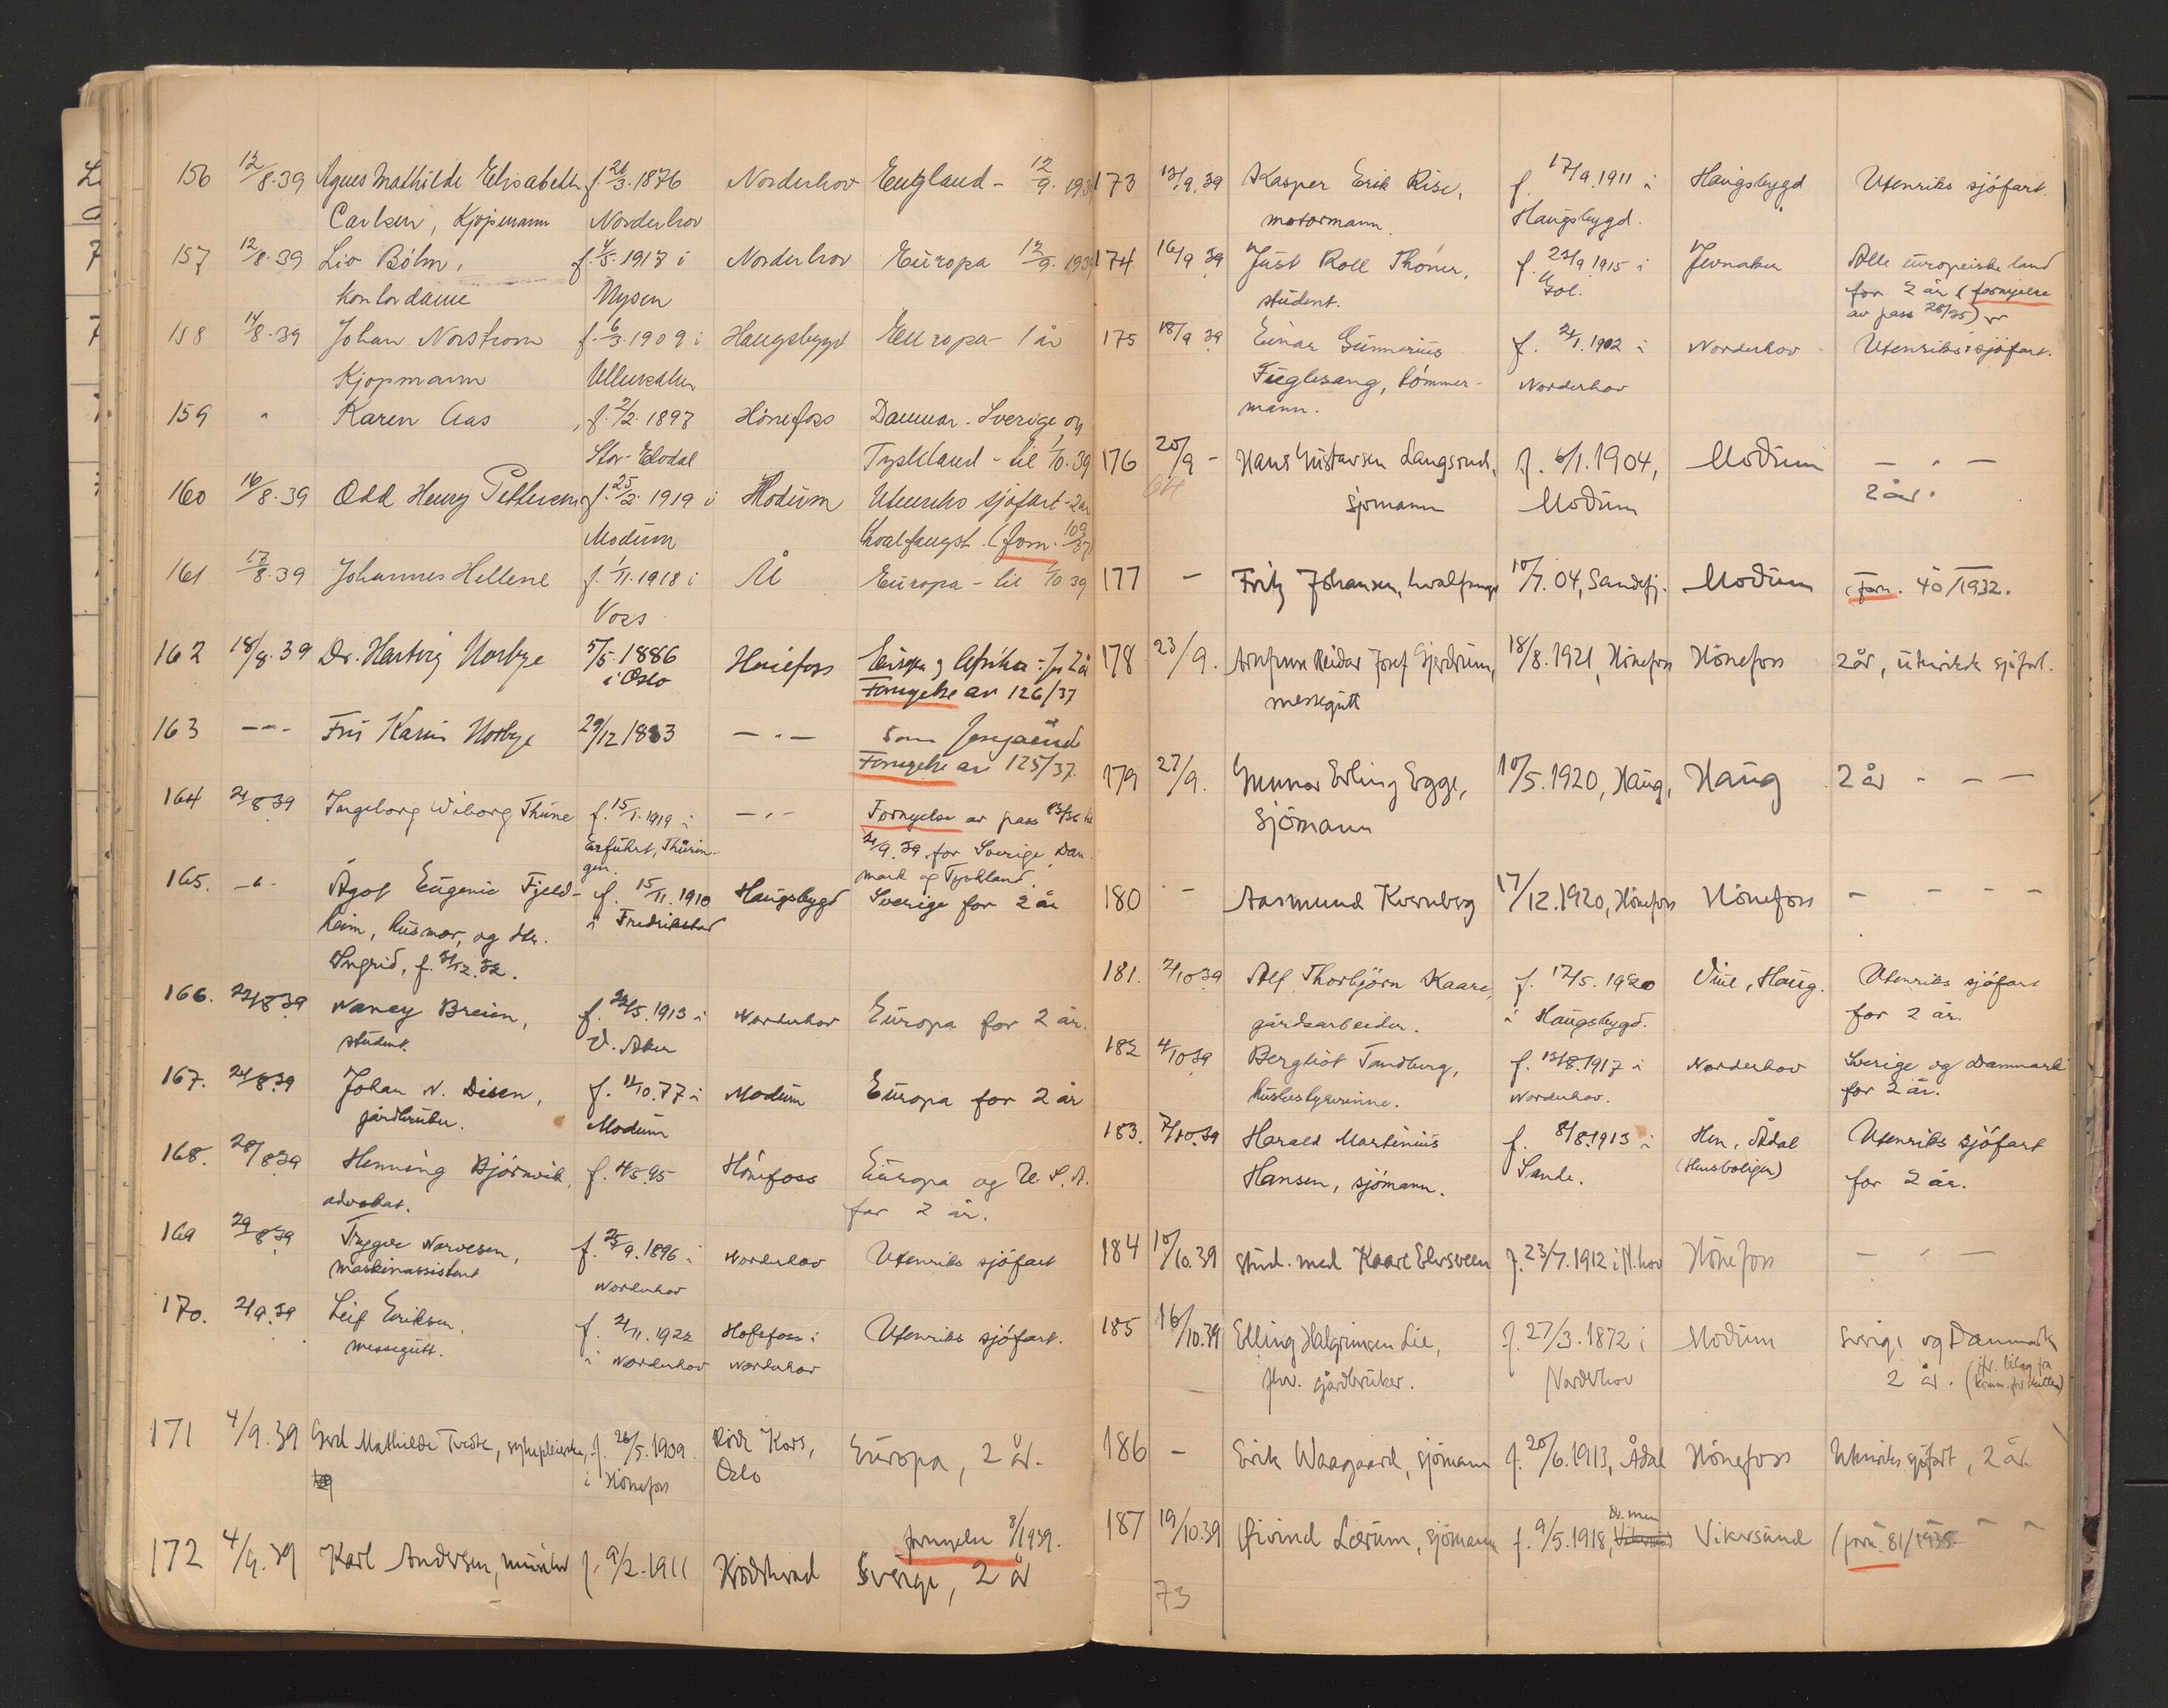 156 12/8.39 Agnes Mathilde Elisabeth f. 21/3.1876 Norderhov England - 12/9.1939
Carlsen, Kjøpmann Norderhov
157 12/8.39 Liv Böhn, f. 4/5.1917 i Norderhov Europa 12/9.1939
kontordame Mysen
158 14/8.39 Johan Norstrom f. 6/3.1909 i Haugsbygd Europa - 1 år
Kjøpmann Ullensaker
159 " Karen Aas, f. 2/2.1897 Hönefoss Danmar. Sverige og
Stor-Elvdal Tyskland - til 1/10.39
160 16/8.39 Odd Henry Pettersen f. 25/2.1919 i Modum Utenriks sjøfart - 2 år
Modum Hvalfangst. (forn. 109/37)
161 17/8.39 Johannes Hellene f. 1/11.1918 i Ål Europa - til 1/10 39
Voss
162 18/8.39 Dr. Hartvig Norbye 5/5.1886 Hönefoss Europa og Afrika - for 2 år
i Oslo Fornyelse av 126/37
163 - " - Fru Karin Norbye 29/12 1883 - " - Som foregående
Fornyelse av 125/37.
164 21/8 39 Ingeborg Wiborg Thüne f. 15/1.1919 i - " - Fornyelse av pass 83/36 til
Erfuhrt, Thürin- 21/9.39 for Sverige, Dan-
gen. mark og Tyskland.
165. - " - Ågot Eugenie Fjeld- f. 15/11.1910 Haugsbygd Sverige for 2 år
heim, husmor, og dtr. i Fredrikstad
Ingrid, f. 31/12.32.
166. 22/8 39 Nancy Breien, f. 22/5.1913 i Norderhov Europa for 2 år.
student. V. Aker
167. 24/8.39 Johan N. Disen, f. 11/10.77 i Modum Europa for 2 år
gårdbruker. Modum
168. 28/8 39 Henning Bjørnvik, f. 4/5.95 Hönefoss Europa og U.S.A.
advokat. for 2 år.
169 29/8 39 Trygve Narvesen, f. 25/9.1896 i Norderhov Utenriks sjøfart
maskinassistent Norderhov
170. 2/9.39 Leif Eriksen, f. 21/11.1922 Hofsfoss i Utenriks sjøfart.
messegutt. i Norderhov Norderhov
171 4/9.39 Gerd Mathilde Tvedt, sykepleierske, f. 26/5.1909. Röde Kors, Europa, 2 år.
i Hönefoss Oslo
fornyelse 8/1939.
172 4/9.39 Karl Andersen, murer f. 9/2.1911 Krödsherad Sverige, 2 år
173 13/9.39 Kasper Erik Rise, f. 17/9.1911 i Haugsbygd Utenriks sjøfart.
motormann. Haugsbygd.
174 16/9 39 Just Roll Thoner, f. 23/9 1915 i Jevnaker Alle europeiske land
student. Gol. for 2 år (fornyelse
av pass 28/35)
175 18/9 39 Einar Gunnerius f. 21/1.1902 i Norderhov Utenriks sjøfart.
Fuglesang, tömmer- Norderhov
mann.
176 20/9 - Hans Gustavsen Langsrud, f. 6/1.1904, Modum - " -
64 sjømann Modum 2 år.
177 - Fritz Johansen, hvalfanger 10/7.04, Sandefj. Modum (Forn. 40/1932.
178 23/9. Arnfinn Reidar Josef Gjerdrum, 18/8.1921, Hönefoss Hönefoss 2 år, utenriks sjøfart.
messegutt
179 27/9. Gunnar Erling Egge, 10/5.1920, Haug, Haug 2 år - " -
Sjömann
180 - Aasmund Kvernberg 17/12.1920, Hönefoss Hönefoss - - - -
181. 2/10 39 Alf Thorbjörn Kaare, f. 12/5.1920 Viul, Haug. Utenriks sjøfart
gårdsarbeider. i Haugsbygd. for 2 år.
182 4/10 39 Bergliot Tandberg, f. 13/8.1917 i Norderhov Sverige og Danmark
husbestyrerinne. Norderhov. for 2 år.
183. 7/10.39 Harald Martinius f. 8/8.1913 i Hen, Ådal Utenriks sjøfart
Hansen, sjömann. Sande. (Hensboliger) for 2 år.
184 10/10.39 stud. med Kaare Elvsveen f. 23/7.1912 i N.hov Hönefoss - " -
185 16/10.39 Elling Helgrimsen Lie, f. 27/3.1872 i Modum Sverige og Danmark
fhv. gårdbruker. Norderhov 2 år. (jfr. bilag fra
186 - Erik Waagaard, sjömann f. 20/6.1913, Ådal Hönefoss Utenriks sjöfart, 2 år.
187 19/10.39 Øivind Lærum, sjömann f. 9/5.1918, Drammen Vikersund (forn. 81/1935 - "
73